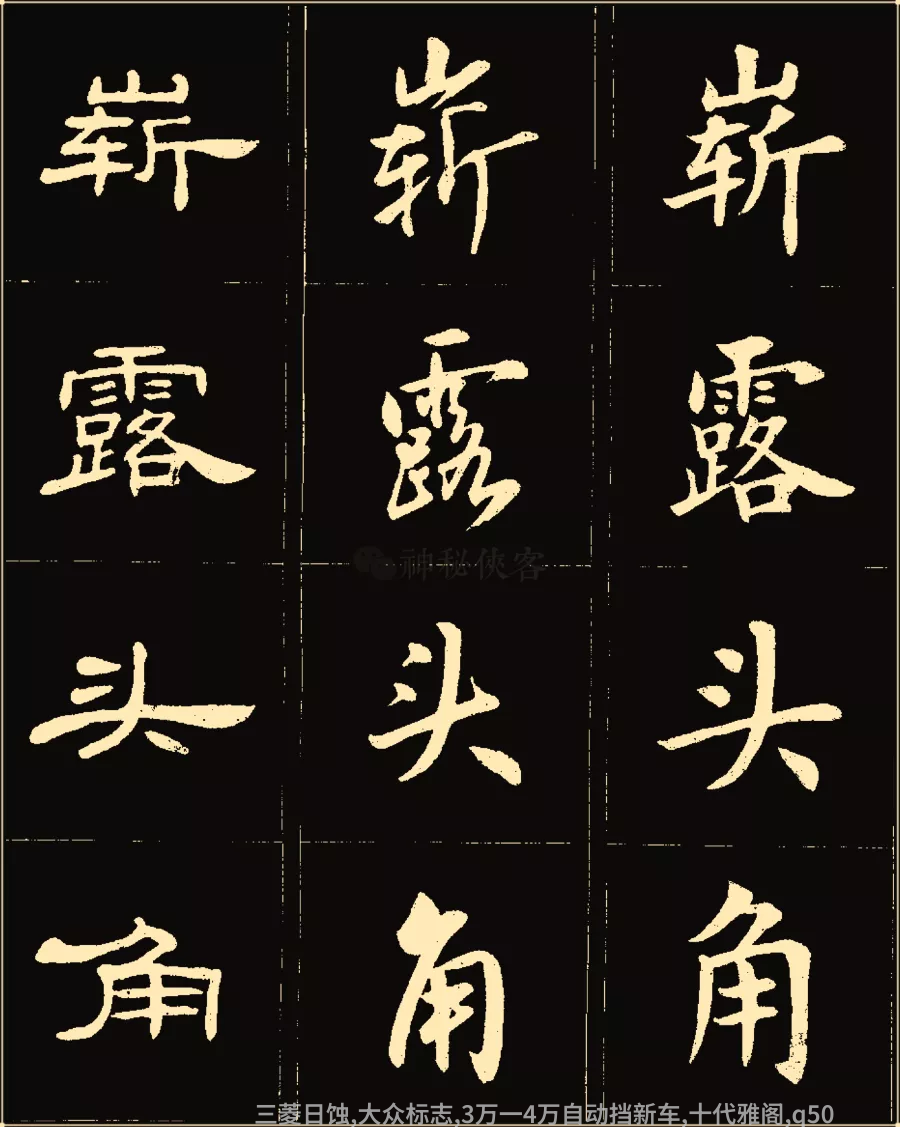 崭 崭 崭
露 露 露
神秘俠客
头 头 头
角 角 角
三菱日蚀,大众标志,3万一4万自动挡新车,十代雅阁,q50